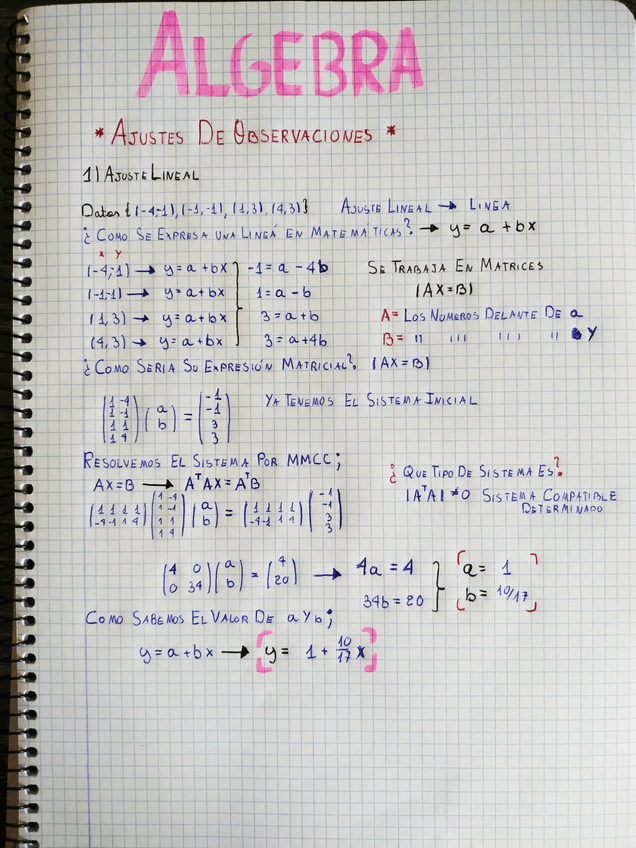 ALGEBRA
* AJUSTES DE OBSERVACIONES *
1) AJUSTE LINEAL
Datos {(-4,-1), (-1,-1), (1,3), (4,3)} AJUSTE LINEAL → LINEA
¿COMO SE EXPRESA UNA LINEA EN MATEMÁTICAS? → y = a + bx
x y
(-4,-1) → y = a + bx -1 = a - 4b SE TRABAJA EN MATRICES
(-1-1) → y = a + bx 1 = a - b |AX=B|
(1,3) → y = a + bx 3 = a + b A= LOS NUMEROS DELANTE DE a
(4,3) → y = a + bx 3 = a + 4b B= " ''' ''' " b y
¿COMO SERIA SU EXPRESIÓN MATRICIAL? |AX=B|
(1 -4; 1 -1; 1 1; 1 4) (a; b) = (-1; -1; 3; 3) YA TENEMOS EL SISTEMA INICIAL
RESOLVEMOS EL SISTEMA POR MMCC; ¿QUE TIPO DE SISTEMA ES?
AX=B → AᵀAX = AᵀB |AᵀA| ≠ 0 SISTEMA COMPATIBLE DETERMINADO
(1 1 1 1; -4 -1 1 4) (1 -4; 1 -1; 1 1; 1 4) (a; b) = (1 1 1 1; -4 -1 1 4) (-1; -1; 3; 3)
(4 0; 0 34) (a; b) = (4; 20) → 4a = 4 a = 1
34b = 20 b = 10/17
COMO SABEMOS EL VALOR DE a Y b;
y = a + bx → [y = 1 + 10/17 x]